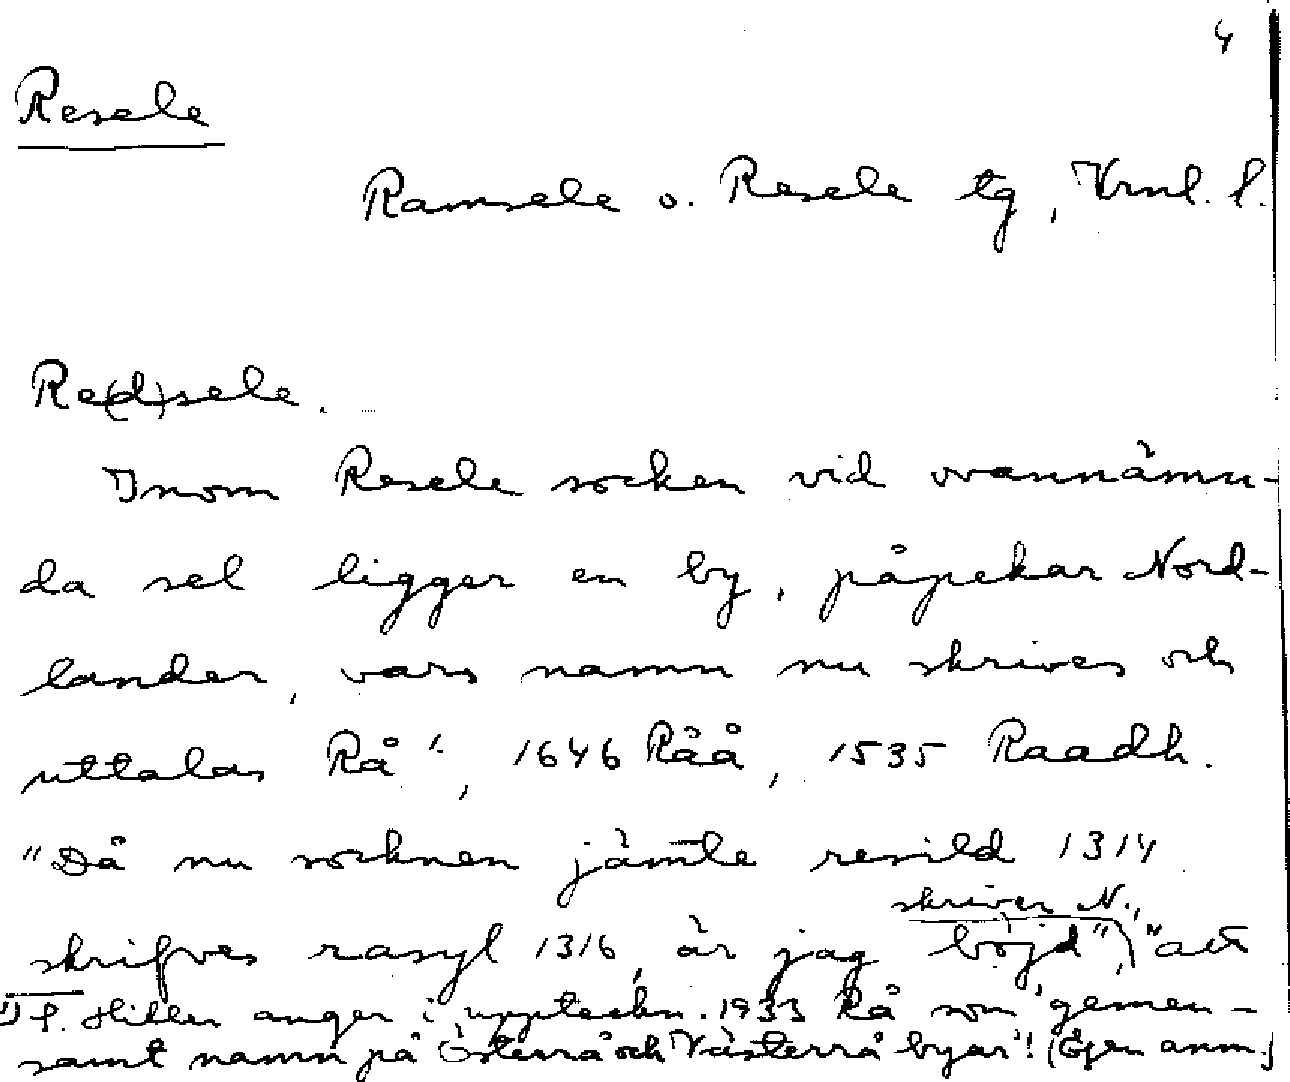 4
Resele
Ramsele o. Resele tg, Vrnl. l.
Re(d)sele.
Inom Resele socken vid ovannämn-
da sel ligger en by, påpekar Nord-
lander, vars namn nu skrives och
uttalas Rå¹⁾, 1646 Råå, 1535 Raadh.
"Då nu socknen jämte resild 1314
skriver N.,
skrifves rasyl 1316, är jag böjd", "att
¹⁾ f. Hillen anger i uppteckn. 1933 Rå som 'gemen-
samt namn på Österrå och Västerrå byar'! (Egen anm.)